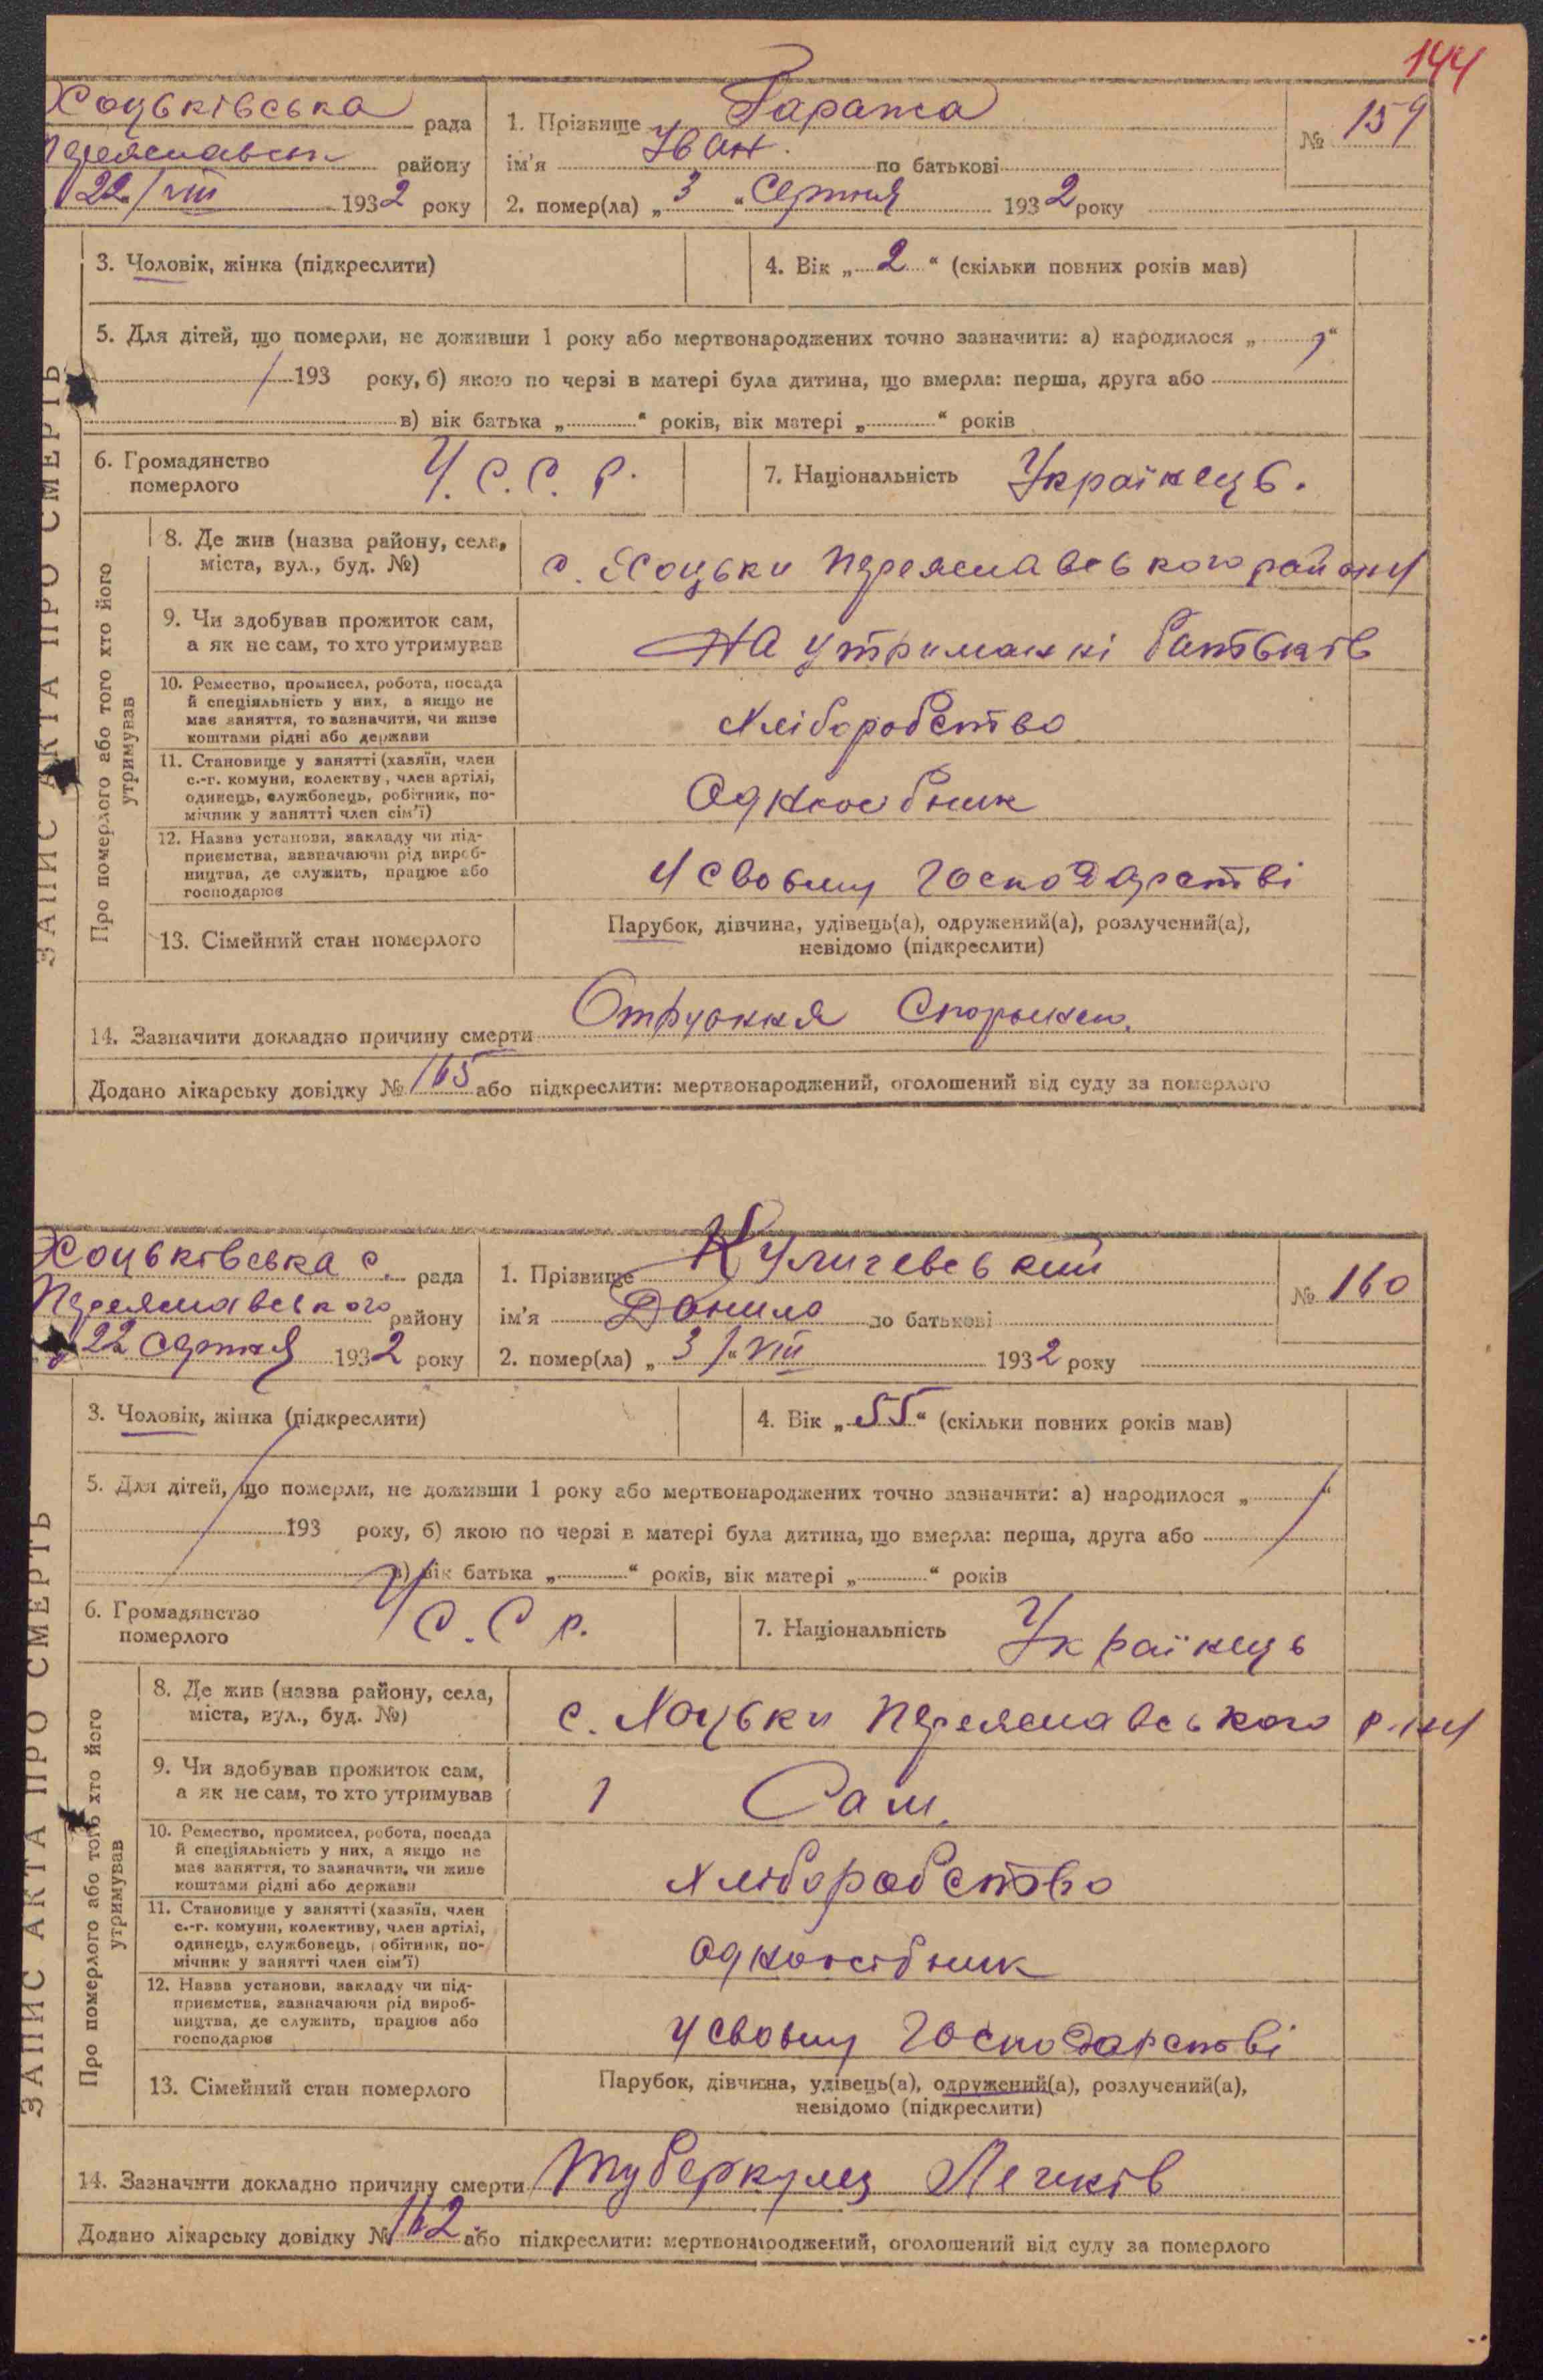 144
Хоцьківська рада
Переяславськ району
22/VIII 1932 року
1. Прізвище Гаража
№ 159
ім'я Іван по батькові
2. помер(ла) „3“ Серпня 1932 року
3. Чоловік, жінка (підкреслити)
4. Вік „2“ (скільки повних років мав)
5. Для дітей, що померли, не доживши 1 року або мертвонароджених точно зазначити: а) народилося „ “
193 року, б) якою по черзі в матері була дитина, що вмерла: перша, друга або
в) вік батька „ “ років, вік матері „ “ років
6. Громадянство померлого У.С.С.Р.
7. Національність Українець.
ЗАПИС АКТА ПРО СМЕРТЬ
Про померлого або того хто його утримував
8. Де жив (назва району, села,
міста, вул., буд. №)
с. Хоцьки Переяславського району
9. Чи здобував прожиток сам,
а як не сам, то хто утримував
На утриманні батьків
10. Ремество, промисел, робота, посада
й спеціяльність у них, а якщо не
має заняття, то зазначити, чи живе
коштами рідні або держави
Хліборобство
11. Становище у занятті (хазяїн, член
с.-г. комуни, колективу, член артілі,
одинець, службовець, робітник, по-
мічник у занятті член сім'ї)
Одноосібник
12. Назва установи, закладу чи під-
приємства, зазначаючи рід вироб-
ництва, де служить, працює або
господарює
У своєму господарстві
13. Сімейний стан померлого
Парубок, дівчина, удівець(а), одружений(а), розлучений(а),
невідомо (підкреслити)
14. Зазначити докладно причину смерти Отруєння Спориньею.
Додано лікарську довідку № 165 або підкреслити: мертвонароджений, оголошений від суду за померлого
Хоцьківська с. рада
Переяславського району
22 серпня 1932 року
1. Прізвище Куличевський
№ 160
ім'я Данило по батькові
2. помер(ла) „3/“ VIII 1932 року
3. Чоловік, жінка (підкреслити)
4. Вік „55“ (скільки повних років мав)
5. Для дітей, що померли, не доживши 1 року або мертвонароджених точно зазначити: а) народилося „ “
193 року, б) якою по черзі в матері була дитина, що вмерла: перша, друга або
в) вік батька „ “ років, вік матері „ “ років
6. Громадянство померлого У С.С Р.
7. Національність Українець
ЗАПИС АКТА ПРО СМЕРТЬ
Про померлого або того хто його утримував
8. Де жив (назва району, села,
міста, вул., буд. №)
с. Хоцьки Переяславського р-ну
9. Чи здобував прожиток сам,
а як не сам, то хто утримував
1 Сам.
10. Ремество, промисел, робота, посада
й спеціяльність у них, а якщо не
має заняття, то зазначити, чи живе
коштами рідні або держави
Хліборобство
11. Становище у занятті (хазяїн, член
с.-г. комуни, колективу, член артілі,
одинець, службовець, робітник, по-
мічник у занятті член сім'ї)
Одноосібник
12. Назва установи, закладу чи під-
приємства, зазначаючи рід вироб-
ництва, де служить, працює або
господарює
у своєму господарстві
13. Сімейний стан померлого
Парубок, дівчина, удівець(а), одружений(а), розлучений(а),
невідомо (підкреслити)
14. Зазначити докладно причину смерти Туберкулез Легків
Додано лікарську довідку № 162 або підкреслити: мертвонароджений, оголошений від суду за померлого